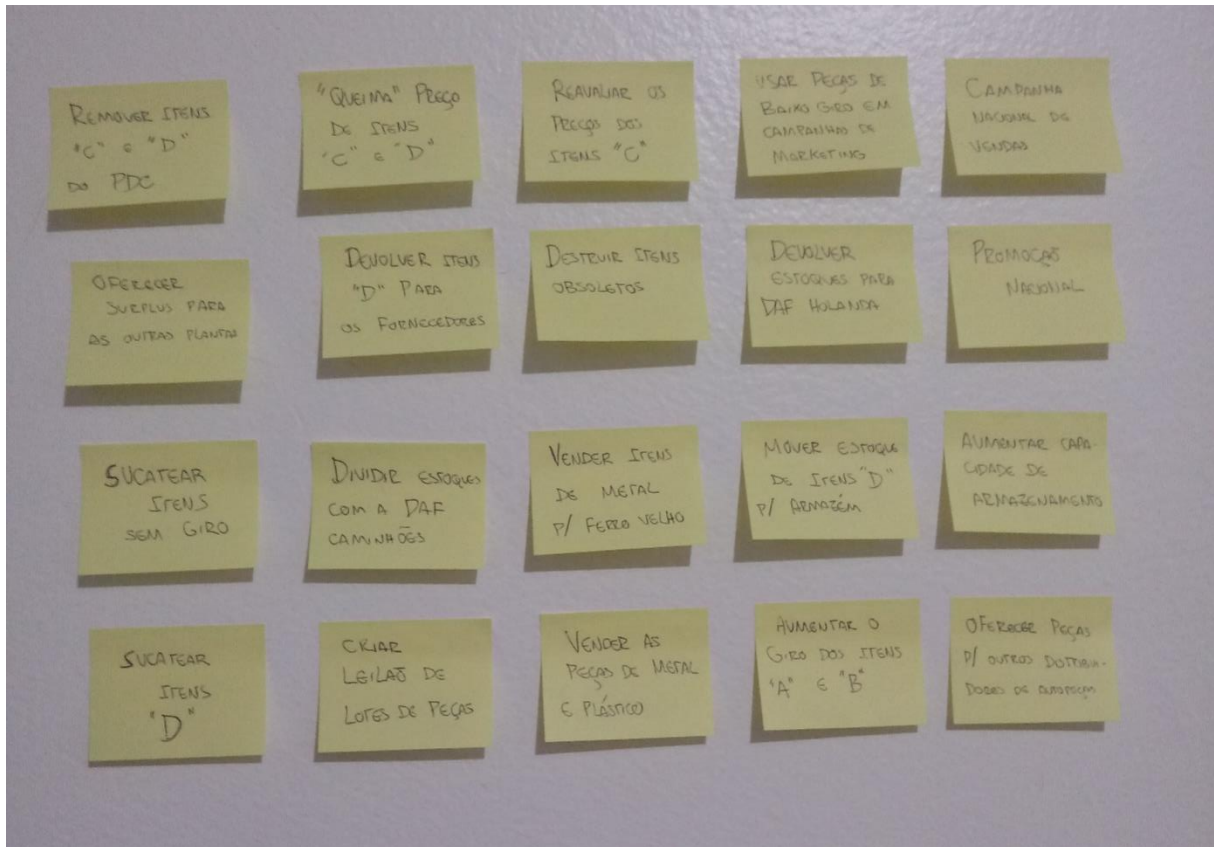 REMOVER ITENS
"C" E "D"
DO PDC
"QUEIMA" PREÇO
DE ITENS
"C" E "D"
REAVALIAR OS
PREÇOS DOS
ITENS "C"
USAR PEÇAS DE
BAIXO GIRO EM
CAMPANHAS DE
MARKETING
CAMPANHA
NACIONAL DE
VENDAS
OFERECER
SURPLUS PARA
AS OUTRAS PLANTAS
DEVOLVER ITENS
"D" PARA
OS FORNECEDORES
DESTRUIR ITENS
OBSOLETOS
DEVOLVER
ESTOQUES PARA
DAF HOLANDA
PROMOÇÃO
NACIONAL
SUCATEAR
ITENS
SEM GIRO
DIVIDIR ESTOQUES
COM A DAF
CAMINHÕES
VENDER ITENS
DE METAL
P/ FERRO VELHO
MOVER ESTOQUE
DE ITENS "D"
P/ ARMAZÉM
AUMENTAR CAPA-
CIDADE DE
ARMAZENAMENTO
SUCATEAR
ITENS
"D"
CRIAR
LEILÃO DE
LOTES DE PEÇAS
VENDER AS
PEÇAS DE METAL
E PLÁSTICO
AUMENTAR O
GIRO DOS ITENS
"A" E "B"
OFERECER PEÇAS
P/ OUTROS DISTRIBUI-
DORES DE AUTOPEÇAS